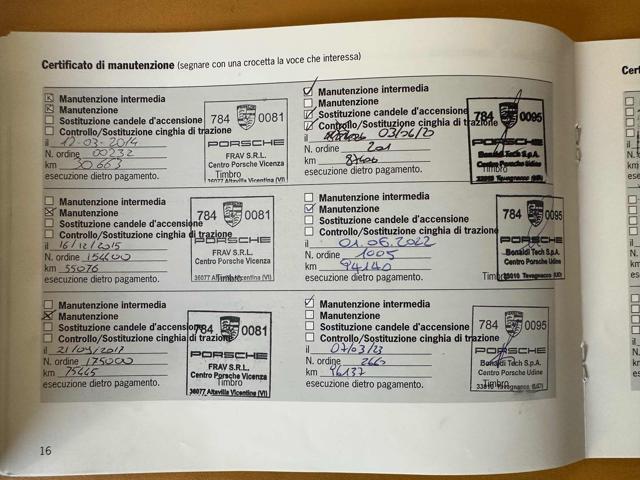 Certificato di manutenzione (segnare con una crocetta la voce che interessa)
Manutenzione intermedia
Manutenzione
Sostituzione candele d'accensione
Controllo/Sostituzione cinghia di trazione
il 12-03-2014
N. ordine 00232
km 30663
esecuzione dietro pagamento.
784 0081
PORSCHE
FRAV S.R.L.
Centro Porsche Vicenza
Timbro
36077 Altavilla Vicentina (VI)
Manutenzione intermedia
Manutenzione
Sostituzione candele d'accensione
Controllo/Sostituzione cinghia di trazione
il 03/06/20
N. ordine 201
km
esecuzione dietro pagamento.
784 0095
PORSCHE
Bonaldi Tech S.p.A.
Centro Porsche Udine
Timbro
33010 Tavagnacco (UD)
Manutenzione intermedia
Manutenzione
Sostituzione candele d'accensione
Controllo/Sostituzione cinghia di trazione
il 16/12/2015
N. ordine 154600
km 55076
esecuzione dietro pagamento.
784 0081
PORSCHE
FRAV S.R.L.
Centro Porsche Vicenza
36077 Altavilla Vicentina (VI)
Timbro
Manutenzione intermedia
Manutenzione
Sostituzione candele d'accensione
Controllo/Sostituzione cinghia di trazione
il 01.06.2022
N. ordine 1005
km 94140
esecuzione dietro pagamento.
784 0095
PORSCHE
Bonaldi Tech S.p.A.
Centro Porsche Udine
Timbro
33010 Tavagnacco (UD)
Manutenzione intermedia
Manutenzione
Sostituzione candele d'accensione
Controllo/Sostituzione cinghia di trazione
il 21/09/2017
N. ordine 175000
km 75445
esecuzione dietro pagamento.
784 0081
PORSCHE
FRAV S.R.L.
Centro Porsche Vicenza
Timbro
36077 Altavilla Vicentina (VI)
Manutenzione intermedia
Manutenzione
Sostituzione candele d'accensione
Controllo/Sostituzione cinghia di trazione
il 07/03/23
N. ordine 260
km 96137
esecuzione dietro pagamento.
784 0095
PORSCHE
Bonaldi Tech S.p.A.
Centro Porsche Udine
Timbro
33010 Tavagnacco (UD)
16